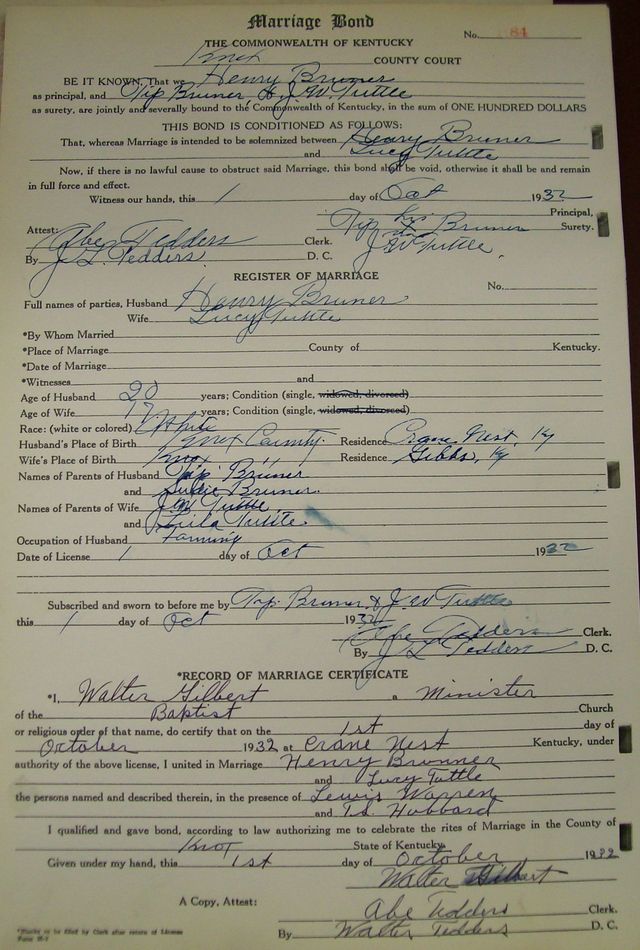 Marriage Bond
No. 84
THE COMMONWEALTH OF KENTUCKY
Knox COUNTY COURT
BE IT KNOWN, That we Henry Bruner
as principal, and Tip Bruner & J. W. Tuttle
as surety, are jointly and severally bound to the Commonwealth of Kentucky, in the sum of ONE HUNDRED DOLLARS
THIS BOND IS CONDITIONED AS FOLLOWS:
That, whereas Marriage is intended to be solemnized between Henry Bruner
and Lucy Tuttle
Now, if there is no lawful cause to obstruct said Marriage, this bond shall be void, otherwise it shall be and remain
in full force and effect.
Witness our hands, this 1 day of Oct 1932
Principal,
Tip Bruner Surety.
Attest:
Abe Tedders Clerk. J W Tuttle
By J. L. Tedders D. C.
REGISTER OF MARRIAGE
No.
Full names of parties, Husband Henry Bruner
Wife Lucy Tuttle
*By Whom Married
*Place of Marriage County of Kentucky.
*Date of Marriage
*Witnesses and
Age of Husband 20 years; Condition (single, widowed, divorced)
Age of Wife 17 years; Condition (single, widowed, divorced)
Race: (white or colored) White
Husband's Place of Birth Knox County Residence Crane Nest, Ky
Wife's Place of Birth Knox Residence Gibbs, Ky
Names of Parents of Husband Tip Bruner
and Sudie Bruner
Names of Parents of Wife J. W. Tuttle
and Tuttle
Occupation of Husband Farming
Date of License 1 day of Oct 1932
Subscribed and sworn to before me by Tip Bruner & J. W Tuttle
this 1 day of Oct 1932
Abe Tedders Clerk.
By J L Tedders D. C.
*RECORD OF MARRIAGE CERTIFICATE
*I, Walter Gilbert a Minister
of the Baptist Church
or religious order of that name, do certify that on the 1st day of
October 1932 at Crane Nest Kentucky, under
authority of the above license, I united in Marriage Henry Brunner
and Lucy Tuttle
the persons named and described therein, in the presence of Lewis Warren
and Hubbard
I qualified and gave bond, according to law authorizing me to celebrate the rites of Marriage in the County of
Knox State of Kentucky
Given under my hand, this 1st day of October 1932
Walter Gilbert
A Copy, Attest: Abe Tedders Clerk.
By Walter Tedders D. C.
*Blanks to be filled by Clerk after return of License